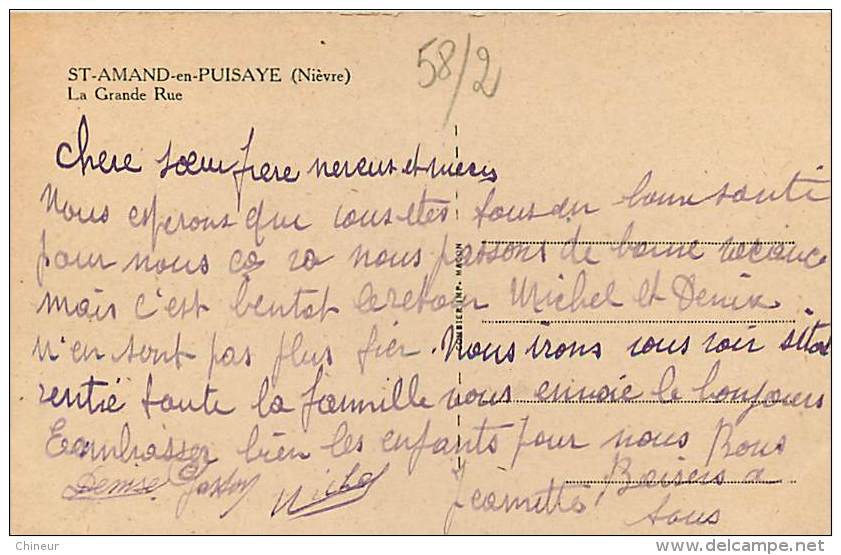 58/2
ST-AMAND-en-PUISAYE (Nièvre)
La Grande Rue
Chere sœur frere neveus et nieces
Nous esperons que vous etes tous en bonne santé
pour nous ça va nous passons de bonne vacance
mais c'est bentot le retour Michel et Denise
n'en sont pas plus fier. Nous irons vous voir sitot
rentré toute la famille vous envoie le bonjours
Embrasser bien les enfants pour nous Bons
Baisers a
tous
Denise Gaston Michel Jeannette
COMBIER IMP. MACON
Chineur
delcampe.net